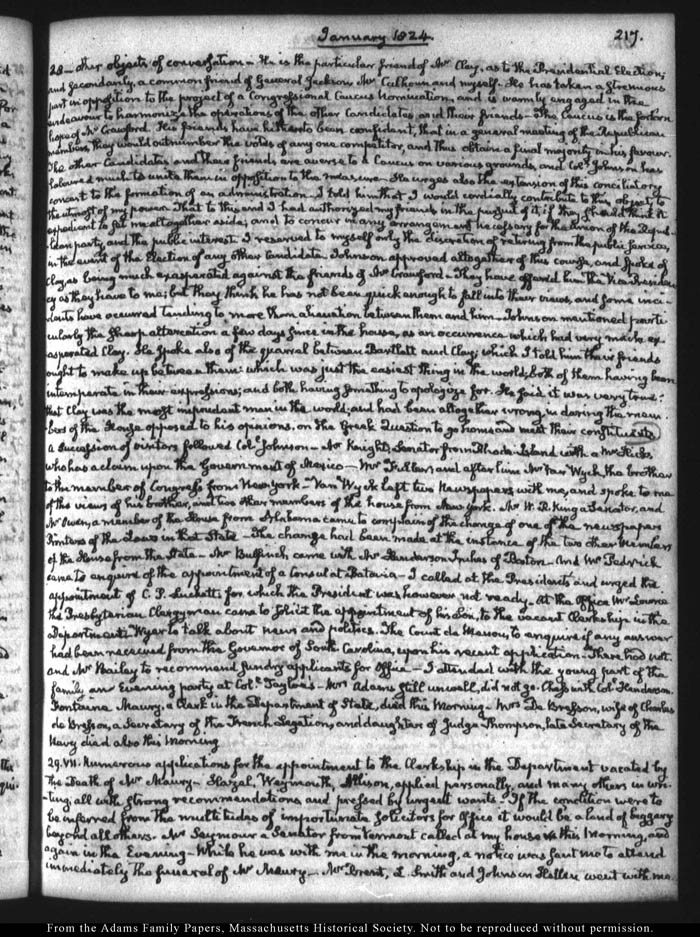 January 1824.
217.
28 – other objects of conversation – He is the particular friend of Mr Clay, as to the Presidential Election;
and secondarily, a common friend of General Jackson, Mr Calhoun and myself. He has taken a strenuous
part in opposition to the project of a Congressional Caucus nomination, and is warmly engaged in the
endeavour to harmonize the operations of the other Candidates, and their friends – The Caucus is the forlorn
hope of Mr Crawford. His friends have hitherto been confident, that in a general meeting of the Republican
members, they would outnumber the votes of any one competitor, and thus obtain a final majority in his favour.
The other Candidates and their friends are averse to a Caucus on various grounds, and Col. Johnson has
laboured much to unite them in opposition to the measure. He urges also the extension of this conciliatory
concert to the formation of an administration. I told him that I would cordially contribute to this object, to
the utmost of my power. That to this end I had authorized my friends in the pursuit of it, if they should think it
expedient to set me altogether aside; and to concur in any arrangement necessary for the union of the Repub-
lican party, and the public interest. I reserved to myself only the discretion of retiring from the public service,
in the event of the Election of any other Candidate. Johnson approved altogether of this course, and spoke of
Clay as being much exasperated against the friends of Mr Crawford. They have offered him the Vice-Presiden-
cy as they have to me; but they think he has not been quick enough to fall into their views, and some inci-
dents have occurred tending to more than alienation between them and him – Johnson mentioned parti-
cularly the sharp altercation a few days since in the house, as an occurrence which had very much ex-
asperated Clay. He spoke also of the quarrel between Bartlett and Clay; which I told him their friends
ought to make up between them: which was just the easiest thing in the world; both of them having been
intemperate in their expressions; and both having something to apologize for. He said it was very true:
that Clay was the most impudent man in the world, and had been altogether wrong, in daring the mem-
bers of the House opposed to his opinions, on the Greek Question to go home and meet their constituents
A succession of visitors followed Col. Johnson – Mr Knight, Senator from Rhode-Island with a Mr
who has a claim upon the Government of Mexico – Mr Fuller, and after him Mr Van Wyck the brother
to the member of Congress from New-York – Van Wyck left two Newspapers with me, and spoke to me
of the views of his brother, and two other members of the house from New York. Mr W. R. King a Senator, and
Mr Owen, a member of the House from Alabama came to complain of the change of one of the newspapers
Printers of the Laws in that State – The change had been made at the instance of the two other Members
of the House from the State – Mr Bulfinch came with Mr Henderson Inches of Boston. And Mr Pedrick
came to enquire of the appointment of a Consul at Batavia – I called at the Presidents and urged the
appointment of C. P. Luckett; for which the President was however not ready. At the Office Mr Lowrie
the Presbyterian Clergyman came to solicit the appointment of his Son, to the vacant Clerkship in the
Department. Wyer to talk about news and politics. The Count de Menou, to enquire if any answer
had been received from the Governor of South Carolina, upon his recent application. There had not.
and Mr Bailey to recommend sundry applicants for Office – I attended with the young part of the
family an Evening party at Col. Tayloe's – Mrs Adams still unwell, did not go. Chess with Col. Henderson.
Fontaine Maury, a Clerk in the Department of State, died this Morning – Mrs De Bresson, wife of Charles
de Bresson, a Secretary of the French Legation, and daughter of Judge Thompson, late Secretary of the
Navy died also this Morning
29. VII. Numerous applications for the appointment to the Clerkship in the Department vacated by
the Death of Mr Maury – Slazel, Weymouth, Allison, applied personally, and many others in wri-
ting; all with strong recommendations and pressed by urgent wants. If the condition were to
be inferred from the multitudes of importunate solicitors for Office it would be a land of beggary
beyond all others. Mr Seymour a Senator from Vermont called at my house this Morning, and
again in the Evening – While he was with me in the morning, a notice was sent me to attend
immediately the funeral of Mr Maury – Mr Brent, L. Smith and Johnson Hellen went with me
From the Adams Family Papers, Massachusetts Historical Society. Not to be reproduced without permission.